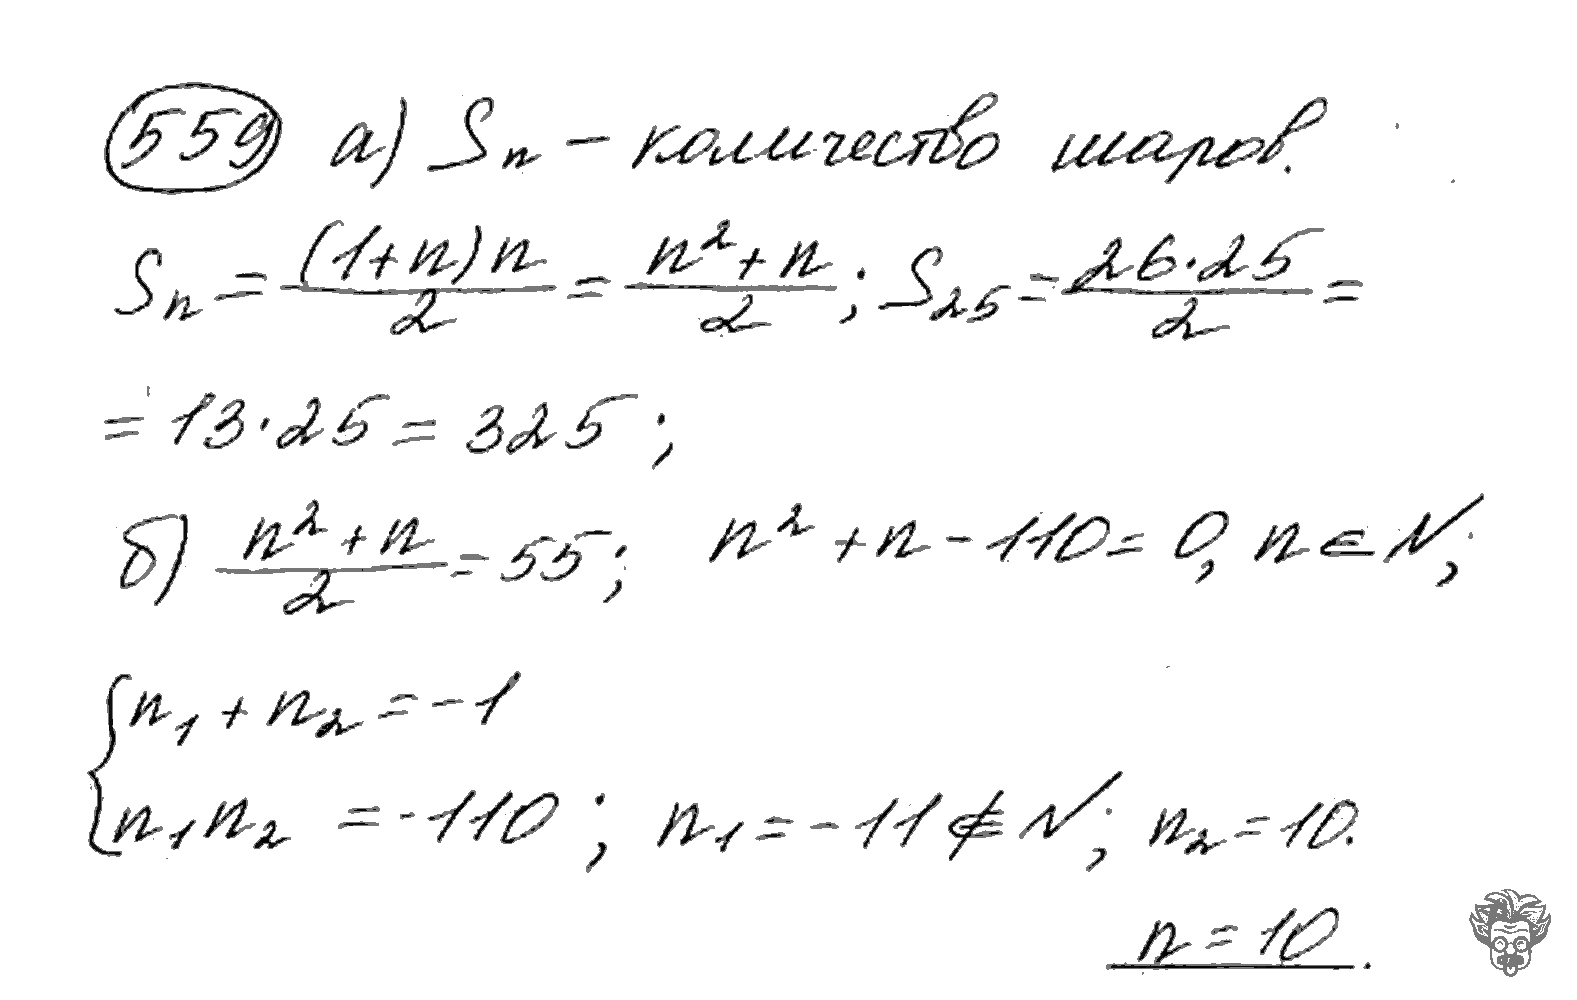 559 а) Sₙ – количество шаров.
Sₙ = (1+n)n/2 = n²+n/2 ; S₂₅ = 26·25/2 =
= 13·25 = 325 ;
б) n²+n/2 = 55 ; n² + n – 110 = 0, n ∈ N ;
{ n₁ + n₂ = -1
n₁n₂ = -110 ; n₁ = -11 ∉ N ; n₂ = 10.
n = 10.